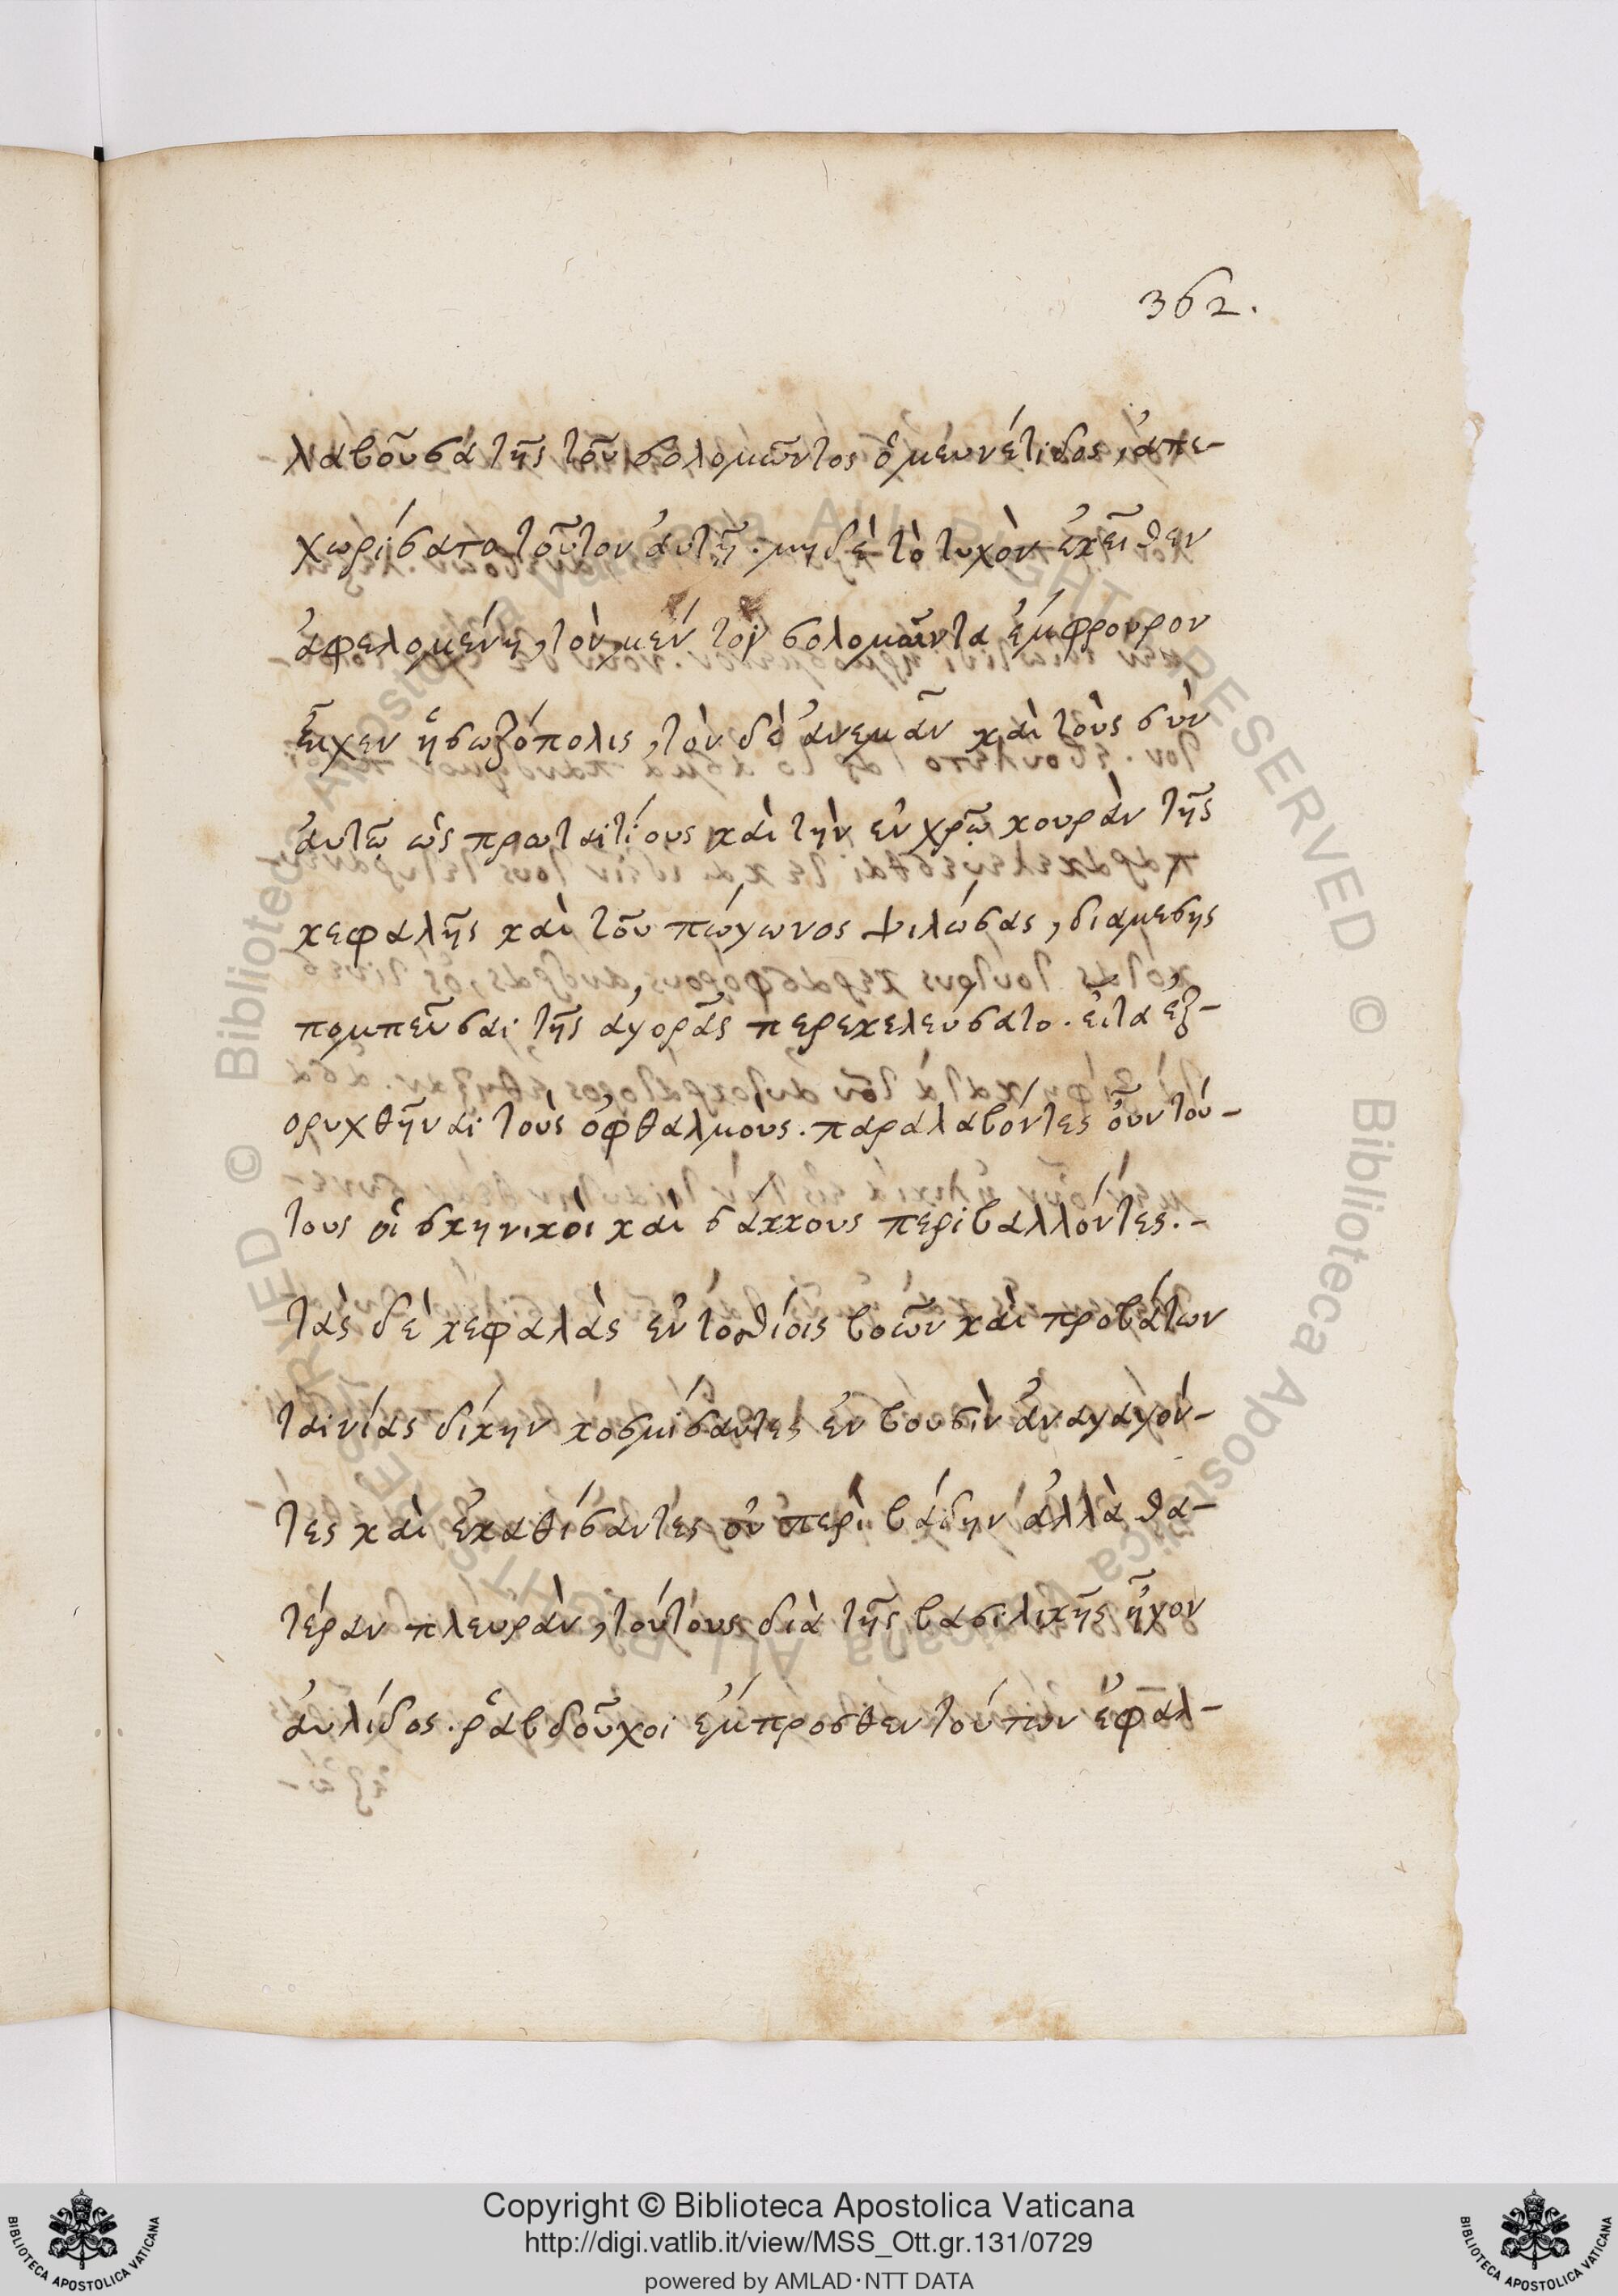 362.
λαβοῦσα τῆς τοῦ σολομῶντος ὁμευνέτιδος, ἀπε-
χωρίσατο τοῦτον ἀυτῆ. μηδὲ τὸ τυχὸν ἐκεῖθεν
ἀφελομένη, τὸν μὲν τὸν σολομῶντα ἐμφρουρον
εἶχεν ἡ σωζόπολις, τὸν δὲ ἀνεμᾶν καὶ τοὺς σὺν
ἀυτῶ ὡς πρωταιτίους καὶ τὴν ἐν χρῶ κουρὰν τῆς
κεφαλῆς καὶ τοῦ πώγωνος ψιλώσας, διαμεσης
πομπεῦσαι τῆς ἀγορᾶς περεκελεύσατο. εἶτα ἐξ-
ορυχθῆναι τοὺς ὀφθαλμους. παραλαβόντες οὖν τού-
τους οἱ σκηνικὸι καὶ σάκκους περιβαλλόντες.-
τὰς δὲ κεφαλὰς ἐντοσθίοις βοῶν καὶ προβάτων
ταινίας δίκην κοσμίσαντες ἐν βουσὶν ἀναγαγόν-
τες καὶ ἐκαθίσαντες οὐ περὶ βάδην ἀλλὰ θα-
τέραν πλευρὰν, τούτους διὰ τῆς βασιλικῆς ἦγον
ἀυλίδος. ῥαβδοῦχοι ἔμπροσθεν τούτων ἐφαλ-
Copyright © Biblioteca Apostolica Vaticana
http://digi.vatlib.it/view/MSS_Ott.gr.131/0729
powered by AMLAD·NTT DATA
BIBLIOTECA APOSTOLICA VATICANA
BIBLIOTECA APOSTOLICA VATICANA
© Biblioteca Apostolica Vaticana ALL RIGHTS RESERVED © Biblioteca Apostolica Vaticana ALL RIGHTS RESERVED